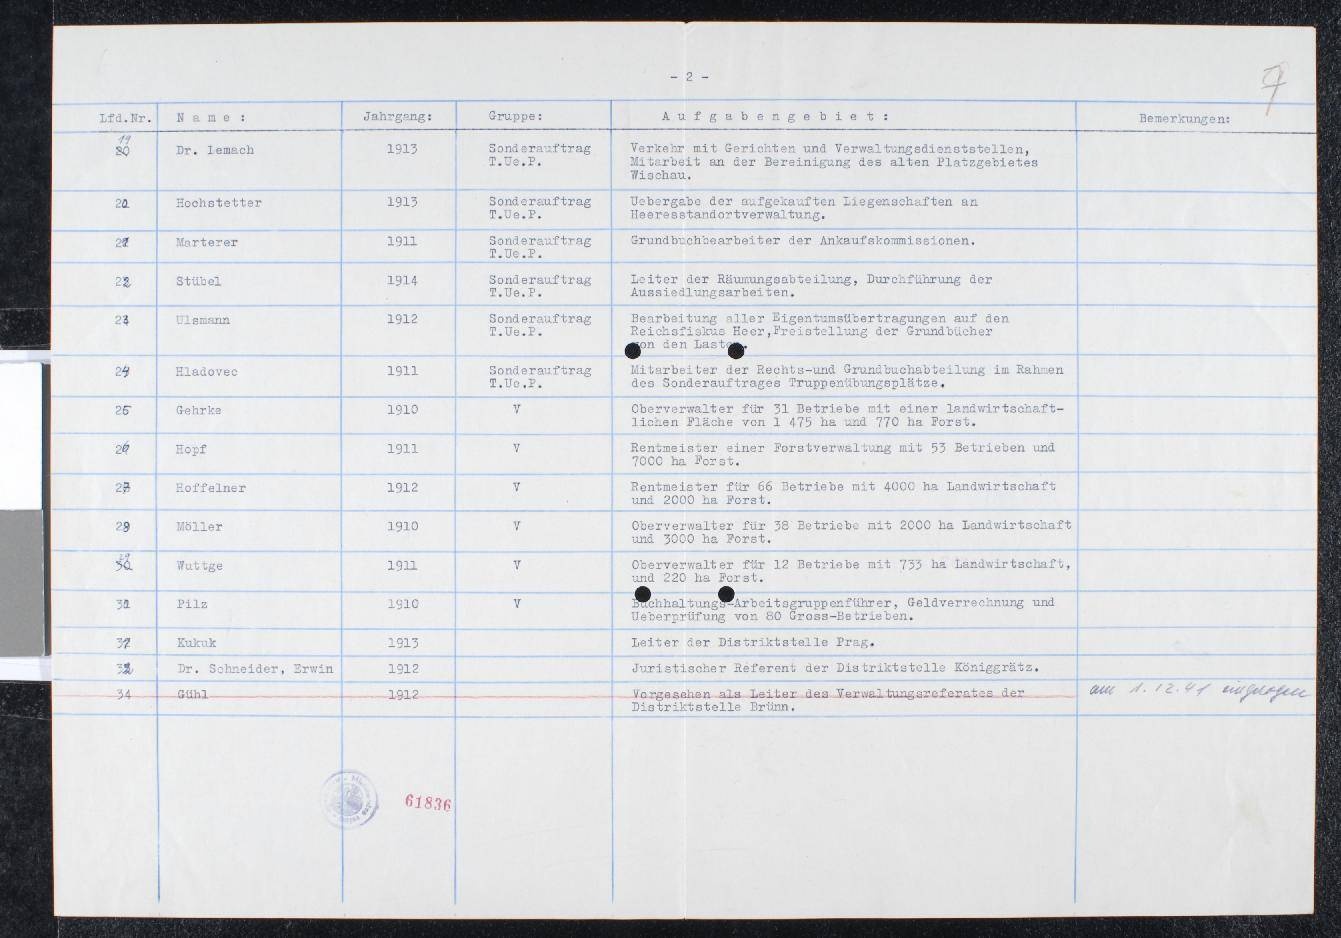 - 2 -
Lfd.Nr. N a m e : Jahrgang: Gruppe: A u f g a b e n g e b i e t : Bemerkungen:
19
Dr. Lemach 1913 Sonderauftrag Verkehr mit Gerichten und Verwaltungsdienststellen,
T.Ue.P. Mitarbeit an der Bereinigung des alten Platzgebietes
Wischau.
20 Hochstetter 1913 Sonderauftrag Uebergabe der aufgekauften Liegenschaften an
T.Ue.P. Heeresstandortverwaltung.
21 Marterer 1911 Sonderauftrag Grundbuchbearbeiter der Ankaufskommissionen.
T.Ue.P.
22 Stübel 1914 Sonderauftrag Leiter der Räumungsabteilung, Durchführung der
T.Ue.P. Aussiedlungsarbeiten.
23 Ulsmann 1912 Sonderauftrag Bearbeitung aller Eigentumsübertragungen auf den
T.Ue.P. Reichsfiskus Heer,Freistellung der Grundbücher
von den Lasten.
24 Hladovec 1911 Sonderauftrag Mitarbeiter der Rechts-und Grundbuchabteilung im Rahmen
T.Ue.P. des Sonderauftrages Truppenübungsplätze.
25 Gehrke 1910 V Oberverwalter für 31 Betriebe mit einer landwirtschaft-
lichen Fläche von 1 475 ha und 770 ha Forst.
26 Hopf 1911 V Rentmeister einer Forstverwaltung mit 53 Betrieben und
7000 ha Forst.
27 Hoffelner 1912 V Rentmeister für 66 Betriebe mit 4000 ha Landwirtschaft
und 2000 ha Forst.
28 Möller 1910 V Oberverwalter für 38 Betriebe mit 2000 ha Landwirtschaft
und 3000 ha Forst.
29
Wuttge 1911 V Oberverwalter für 12 Betriebe mit 733 ha Landwirtschaft,
und 220 ha Forst.
30 Pilz 1910 V Buchhaltungs-Arbeitsgruppenführer, Geldverrechnung und
Ueberprüfung von 80 Gross-Betrieben.
31 Kukuk 1913 Leiter der Distriktstelle Prag.
32 Dr. Schneider, Erwin 1912 Juristischer Referent der Distriktstelle Königgrätz.
34 Gühl 1912 Vorgesehen als Leiter des Verwaltungsreferates der am 1.12.41 eingezogen
Distriktstelle Brünn.
61836